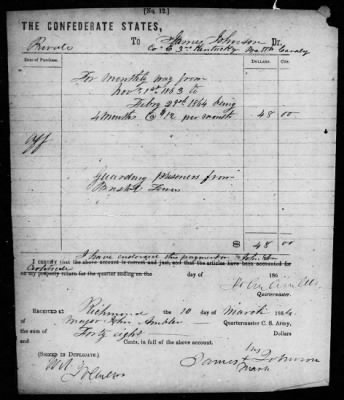 [No. 12.]
THE CONFEDERATE STATES,
Private To James Johnson Dr.
Co E 3rd Kentucky Cavalry
Date of Purchase. Dollars. Cts.
For monthly pay from
Nov 1st 1863 to
Feby 29th 1864 being
4 months @ $12 per month 48 00
Off
guarding prisoners from
Tenn
$ 48 00
I have endorsed this payment on
I certify that the above account is correct and just, and that the articles have been accounted for
Certificate
on my property return for the quarter ending on the day of 186
John Ambler
Quartermaster.
Received at Richmond the 10 day of March 1864,
of Major John Ambler Quartermaster C. S. Army,
the sum of Forty eight Dollars
and Cents, in full of the above account.
(Signed in Duplicate.) his
Wit James X Johnson
mark